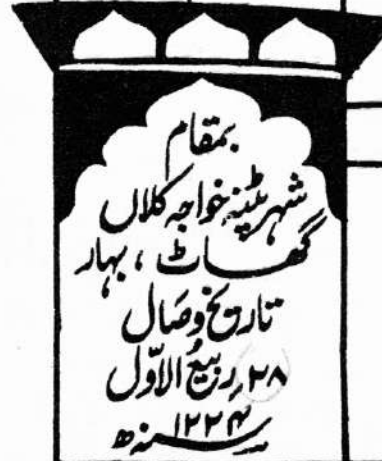 بمقام
شہر پٹنہ خواجہ کلاں
گھاٹ ، بہار
تاریخ وصال
۲۸ ربیع الاوّل
سنہ ۱۲۲۴ھ